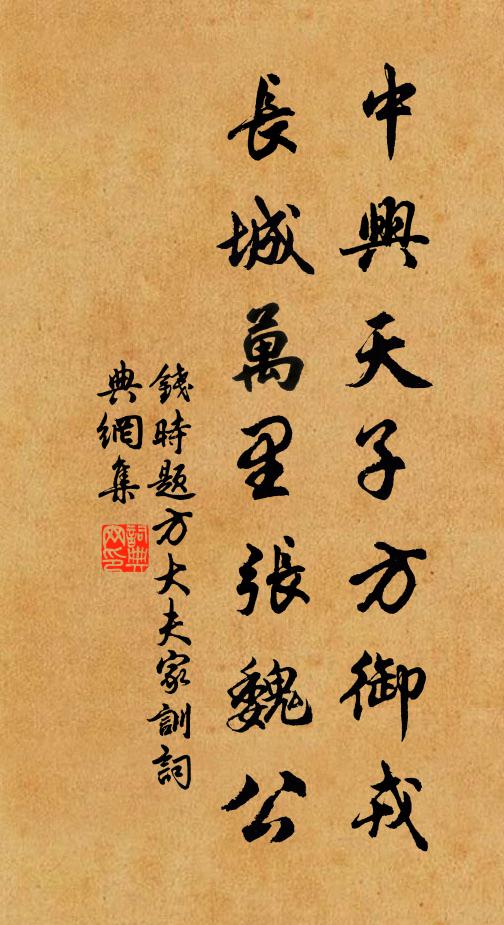 中興天子方御戎
長城萬里張魏公
錢時題方大夫家訓詞
典網集
詞典網印